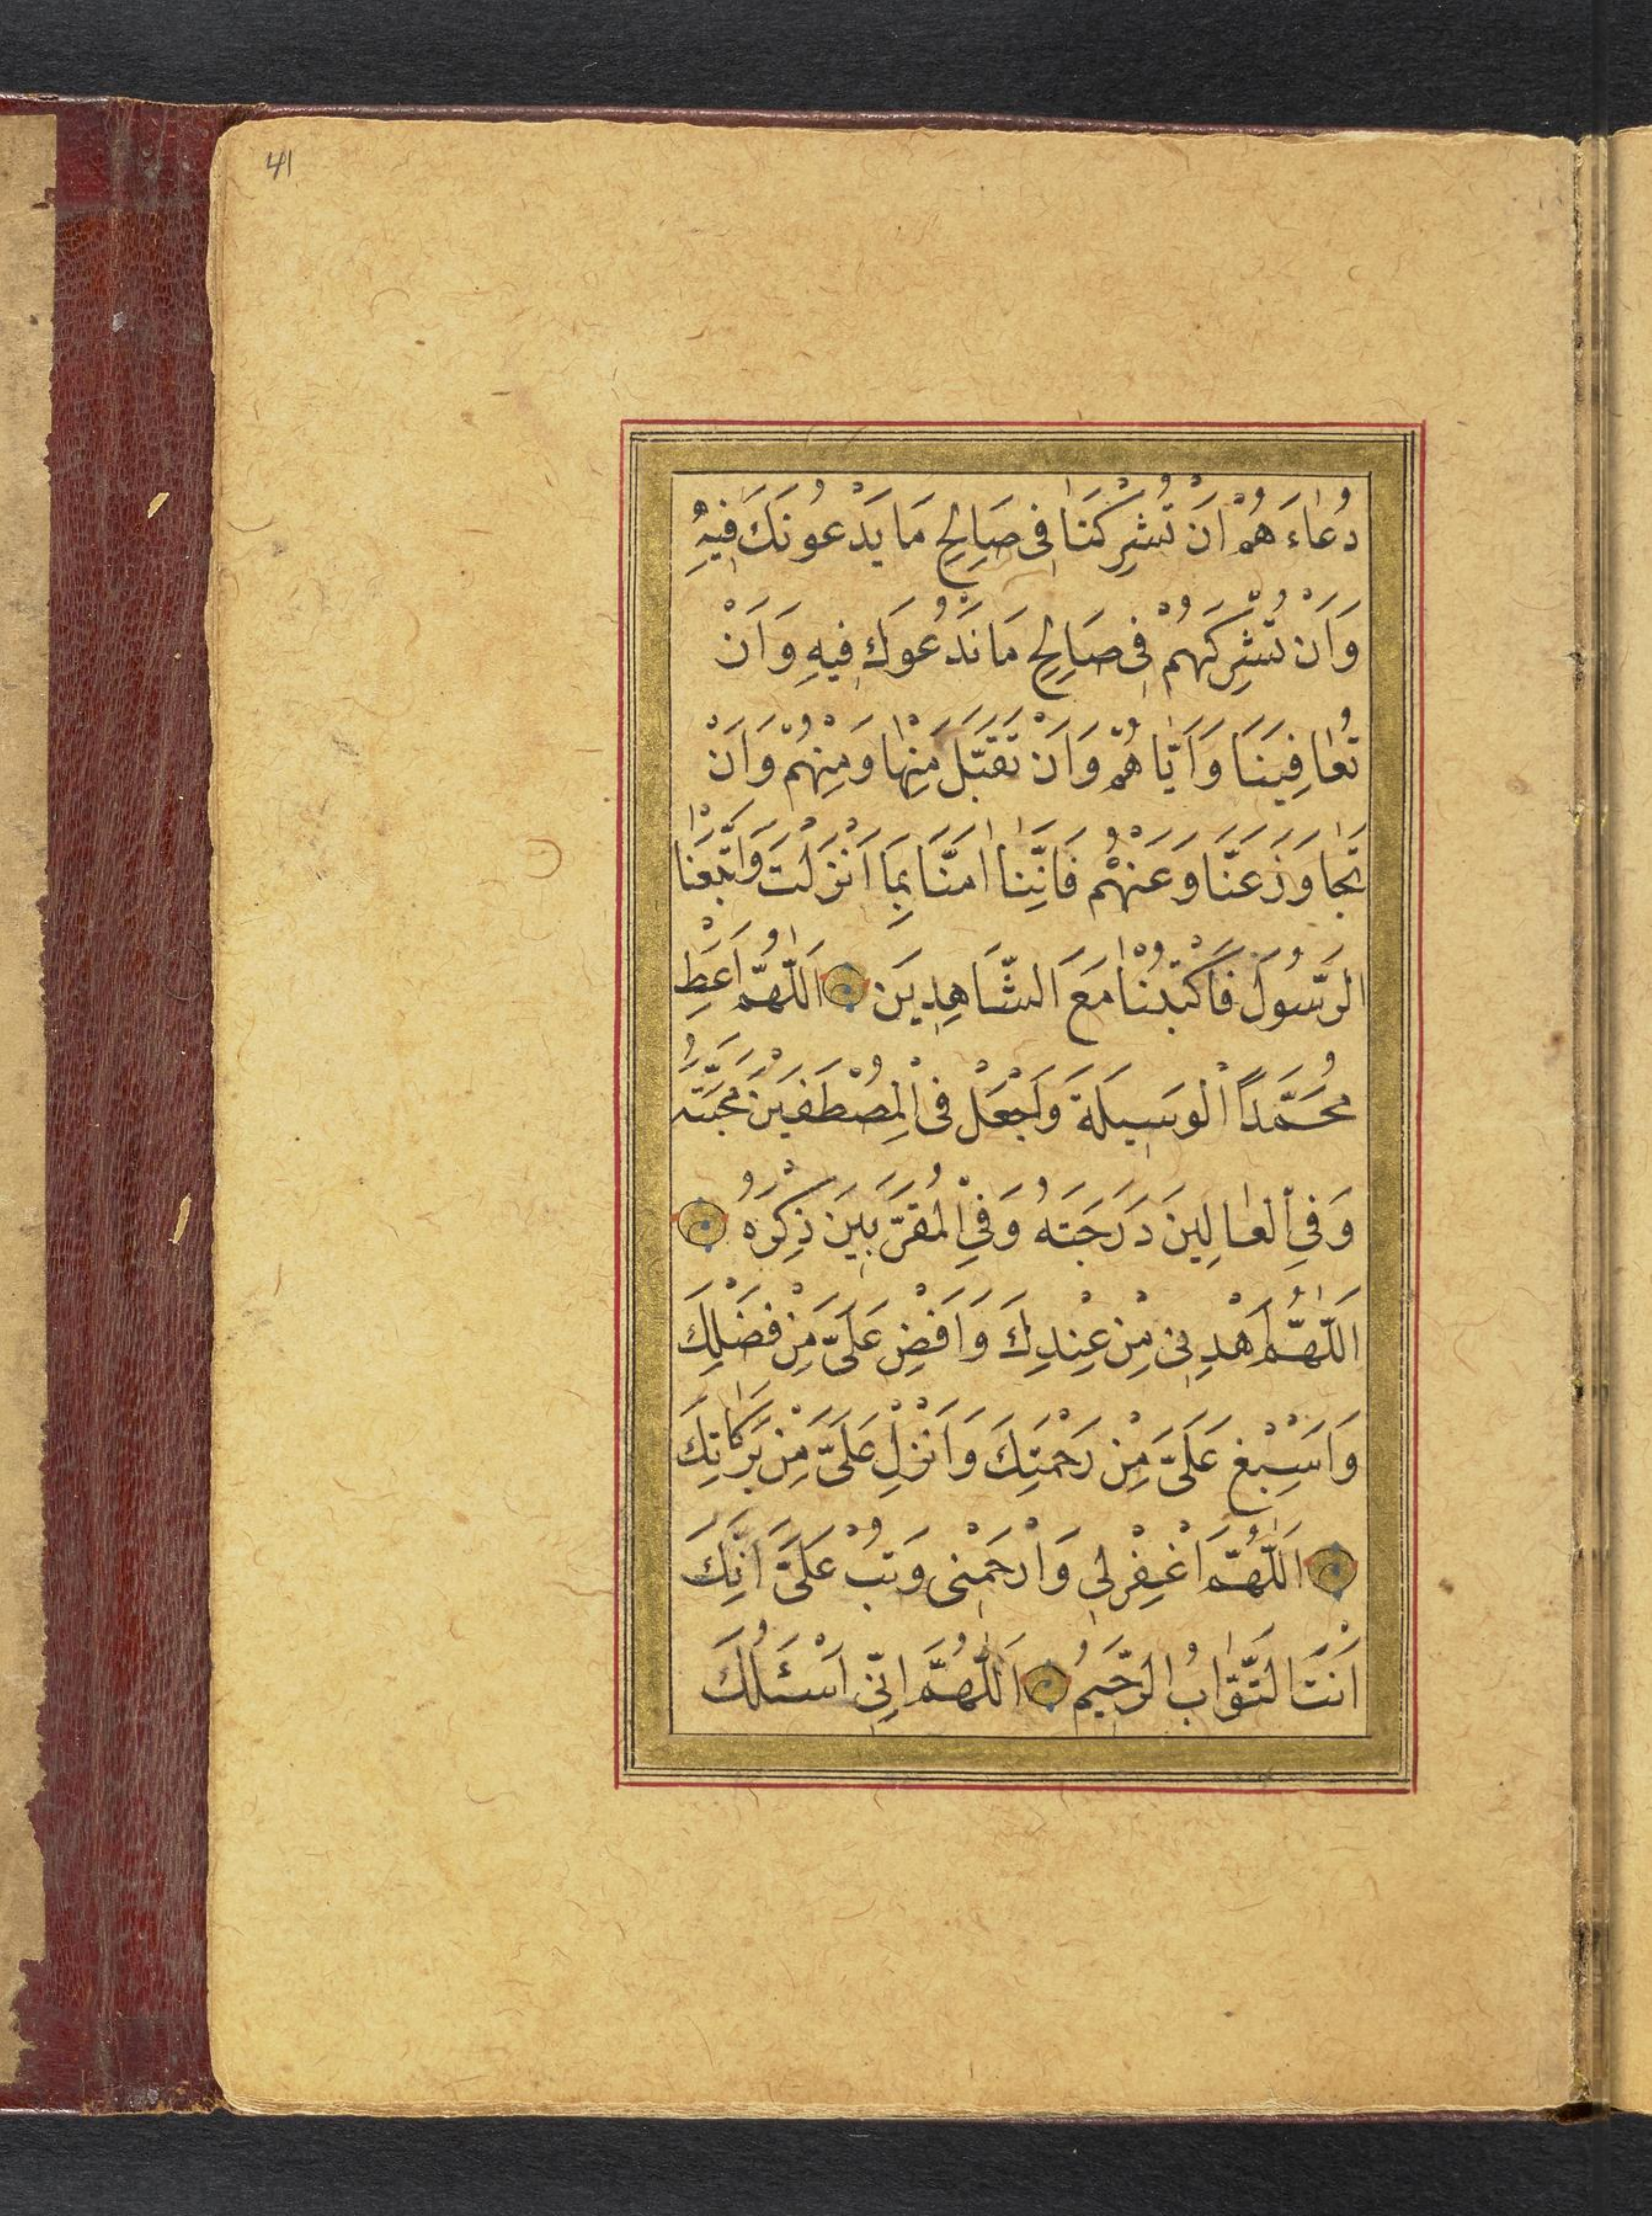 41
دُعَاءَ هُمْ اَنْ تُشْرِكَنَا فِى صَالِحِ مَا يَدْعُونَكَ فِيهِ
وَاَنْ تُشْرِكَهُمْ فِى صَالِحِ مَا نَدْعُوكَ فِيهِ وَاَنْ
تُعَافِيَنَا وَاَيَّاهُمْ وَاَنْ تَقَبَّلَ مِنْهَا وَمِنْهُمْ وَاَنْ
تَجَاوَزَ عَنَّا وَعَنْهُمْ فَاِنَّنَا اٰمَنَّا بِمَا اَنْزَلْتَ وَاتَّبَعْنَا
الرَّسُولَ فَاكْتُبْنَا مَعَ الشَّاهِدِينَ اَللّٰهُمَّ اَعْطِ
مُحَمَّدًا الْوَسِيلَةَ وَاجْعَلْ فِى الْمُصْطَفَيْنَ مُحَبَّتَهُ
وَفِى الْعَالِينَ دَرَجَتَهُ وَفِى الْمُقَرَّبِينَ ذِكْرَهُ
اَللّٰهُمَّ اهْدِنِى مِنْ عِنْدِكَ وَاَفِضْ عَلَىَّ مِنْ فَضْلِكَ
وَاَسْبِغْ عَلَىَّ مِنْ رَحْمَتِكَ وَاَنْزِلْ عَلَىَّ مِنْ بَرَكَاتِكَ
اَللّٰهُمَّ اغْفِرْ لِى وَارْحَمْنِى وَتُبْ عَلَىَّ اِنَّكَ
اَنْتَ التَّوَّابُ الرَّحِيمُ اَللّٰهُمَّ اِنِّى اَسْئَلُكَ